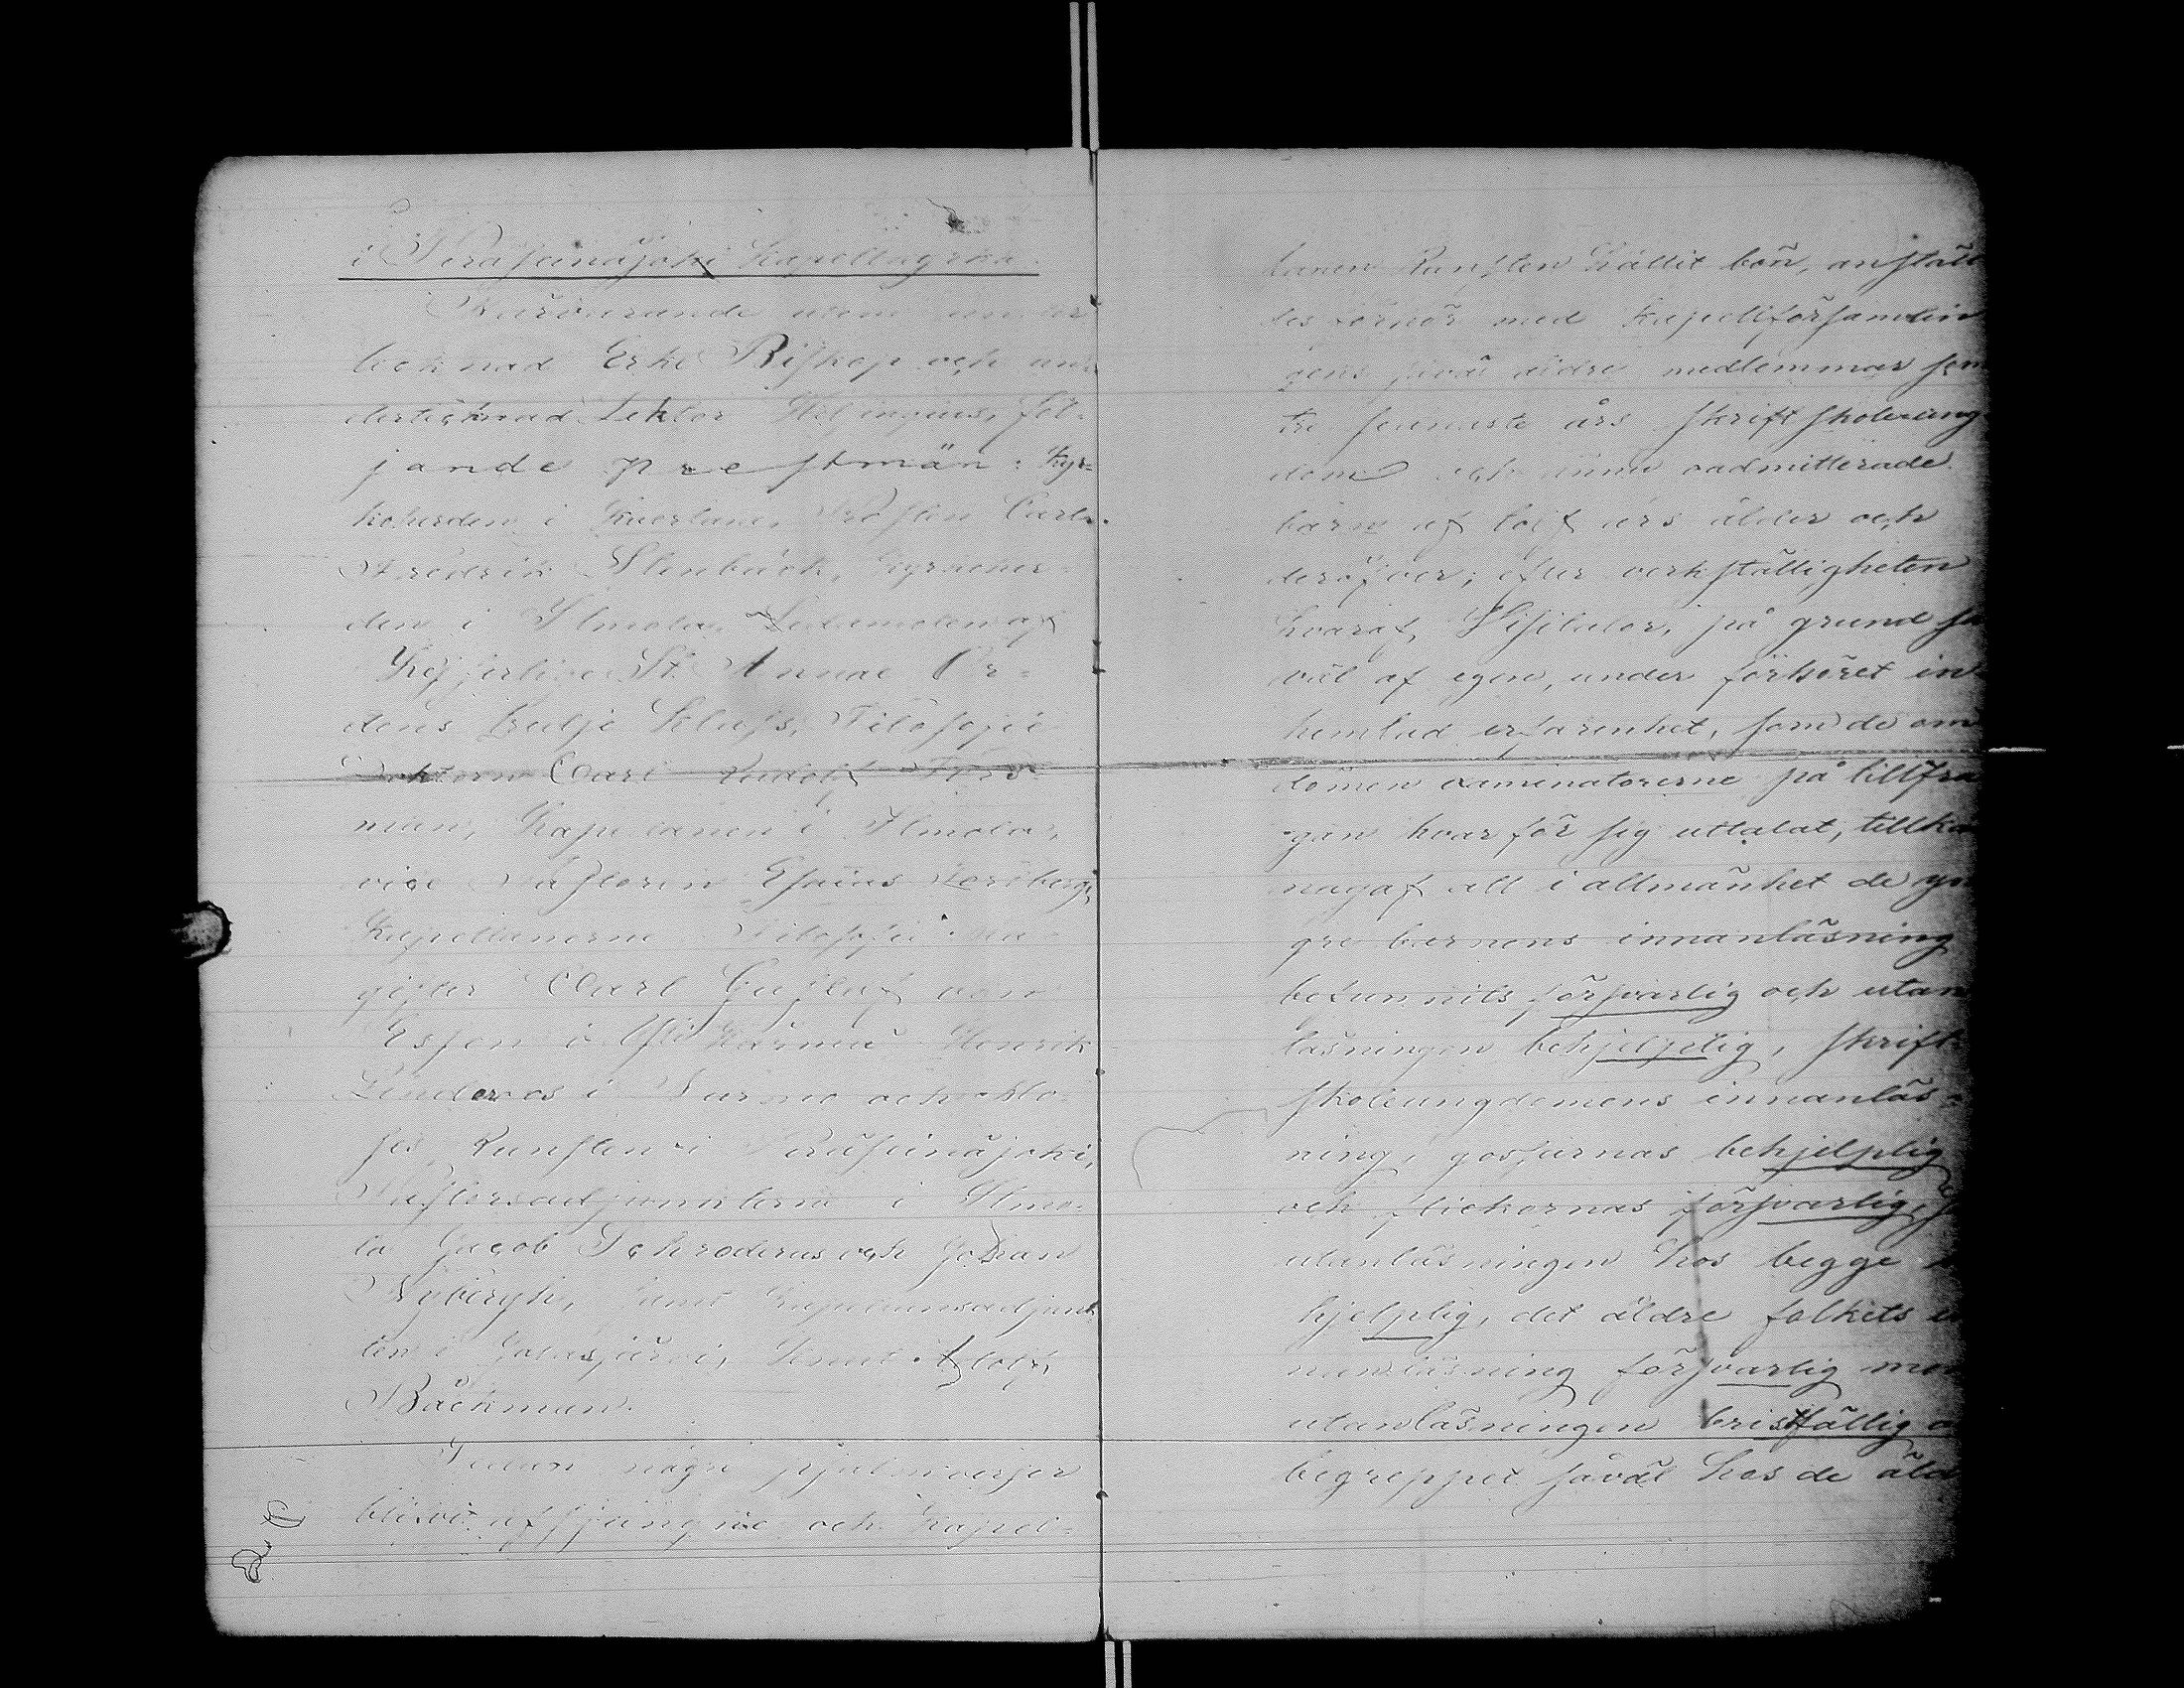 i Peräseinäjoki Kapellkyrka.
Närvarande utom under
tecknad Erke Biskop och un-
dertecknad Lektor Helsingius, föl-
jande prestmän: Kyr-
koherden i Kuortane, Prosten Carl
Fredrik Stenbäck, Kyrkoher
den i Ilmola, Ledamoten af
Kejserliga St. Annae Or-
dens tredje Klass, Filosofie
Doktorn Carl Rudolf Fors-
man, Kapellanen i Ilmola,
vice Pastorn Esaias
Kapellanerne Filosofie Ma-
gister Carl Gustaf von
Essen i Ylihärmä Henrik
i Nurmo och Mo-
ses Runsten i Peräseinäjoki,
Pastorsadjunkterna i Ilmo-
la Jacob Schroderus och Johan
Nybergh, samt Kapellansadjunk
ten i Jalasjärvi, Knut Adolf
Bäckman.
Sedan några psalmverser
blifvit afsjungne och Kapel-
lanen Runsten hållit bön, anstäl
des förhör med Kapellförsamlin
gens såväl äldre medlemmar som
tre senaste års skriftskoleung
dom och ännu oadmitterade
barn af tolf års ålder och
deröfver; efter verkställigheten
hvaraf, Visitator, på grund så
väl af egen, under förhöret in-
hemtad erfarenhet, som de om
dömen examinatorerne på tillfrå
gan hvar för sig uttalat, tillkän
nagaf att i allmänhet de yn
gre barnens innanläsning
befunnits försvarlig och utan
läsningen behjelplig, skrift-
skoleungdomens innanläs-
ning, gossarnas behjelplig
och flickornas försvarlig,
utanläsningen hos begge
hjelplig, det äldre folkets
nanläsning försvarlig men
utanläsningen bristfällig
begreppet såväl hos de äld